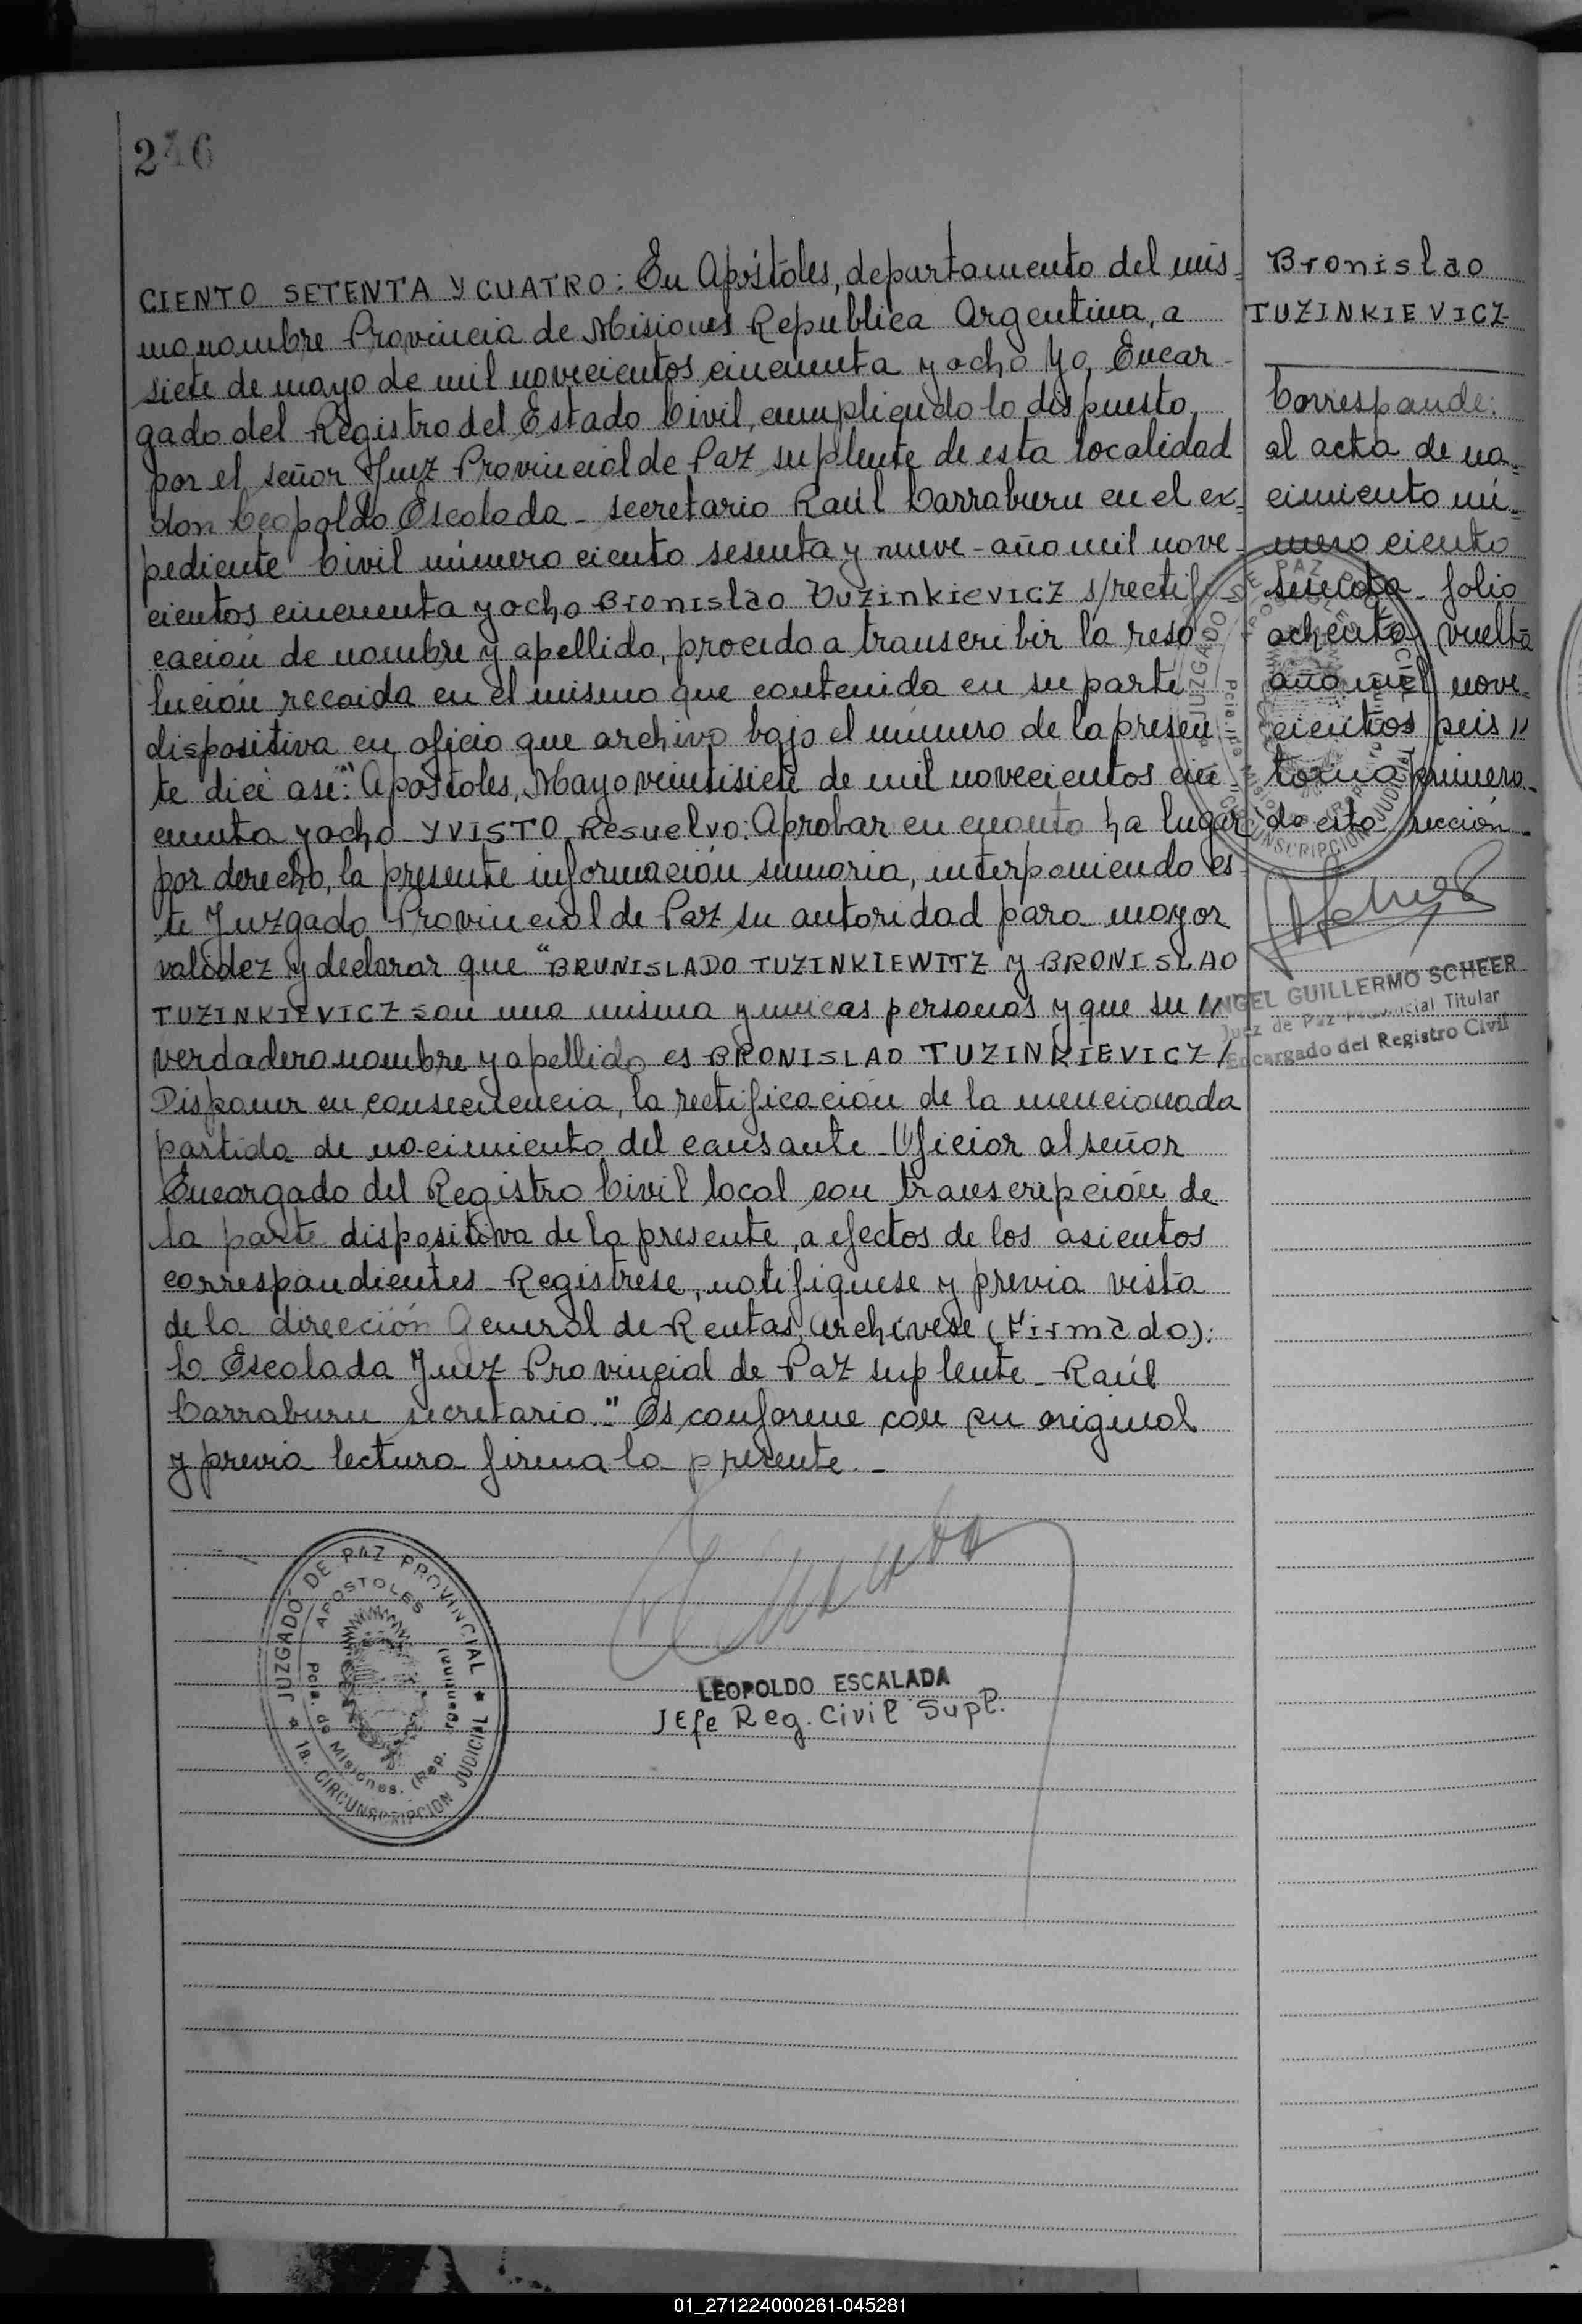 246
CIENTO SETENTA Y CUATRO: En Apóstoles, departamento del mis-
mo nombre Provincia de Misiones Republica Argentina, a
siete de mayo de mil novecientos cincuenta y ocho Yo, Encar-
gado del Registro del Estado Civil, cumpliendo lo dispuesto
por el señor Juez Provincial de Paz suplente de esta localidad
don Leopoldo Escalada - secretario Raúl Carraburu en el ex-
pediente Civil número ciento sesenta y nueve - año mil nove-
cientos cincuenta y ocho Bronislao Tuzinkievicz s/rectifi-
cación de nombre y apellido, procedo a transcribir la reso-
lución recaida en el mismo que contenida en su parte
dispositiva en oficio que archivo bajo el número de la presen
te dice asi: "Apostoles, Mayo veintisiete de mil novecientos cin
cuenta y ocho - Y VISTO Resuelvo: Aprobar en cuanto ha lugar
por derecho, la presente información sumaria, interponiendo es
te Juzgado Provincial de Paz su autoridad para mayor
validez y declarar que "BRUNISLADO TUZINKIEWITZ y BRONISLAO
TUZINKIEVICZ son una misma y unicas personas y que su
verdadero nombre y apellido es BRONISLAO TUZINKIEVICZ/
Disponer en consecuencia, la rectificación de la mencionada
partida de nacimiento del causante - Oficiar al señor
Encargado del Registro Civil local con transcripción de
la parte dispositiva de la presente, a efectos de los asientos
correspondientes - Registrese, notifiquese y previa vista
de la dirección General de Rentas, archivese (Firmado):
L Escalada Juez Provincial de Paz suplente - Raúl
Carraburu secretario." Es conforme con su original
y previa lectura firma la presente. -
Bronislao
TUZINKIEVICZ
Corresponde:
al acta de na-
cimiento nú-
mero ciento
folio
ochenta vuelta
año mil nove-
cientos seis
tomo primero
de esta sección
ANGEL GUILLERMO SCHEER
Juez de Paz Provincial Titular
Encargado del Registro Civil
JUZGADO DE PAZ PROVINCIAL
APOSTOLES
Pcia. de Misiones. (Rep. Argentina)
1a. CIRCUNSCRIPCION JUDICIAL
LEOPOLDO ESCALADA
JEfe Reg. Civil Supl.
01_271224000261-045281